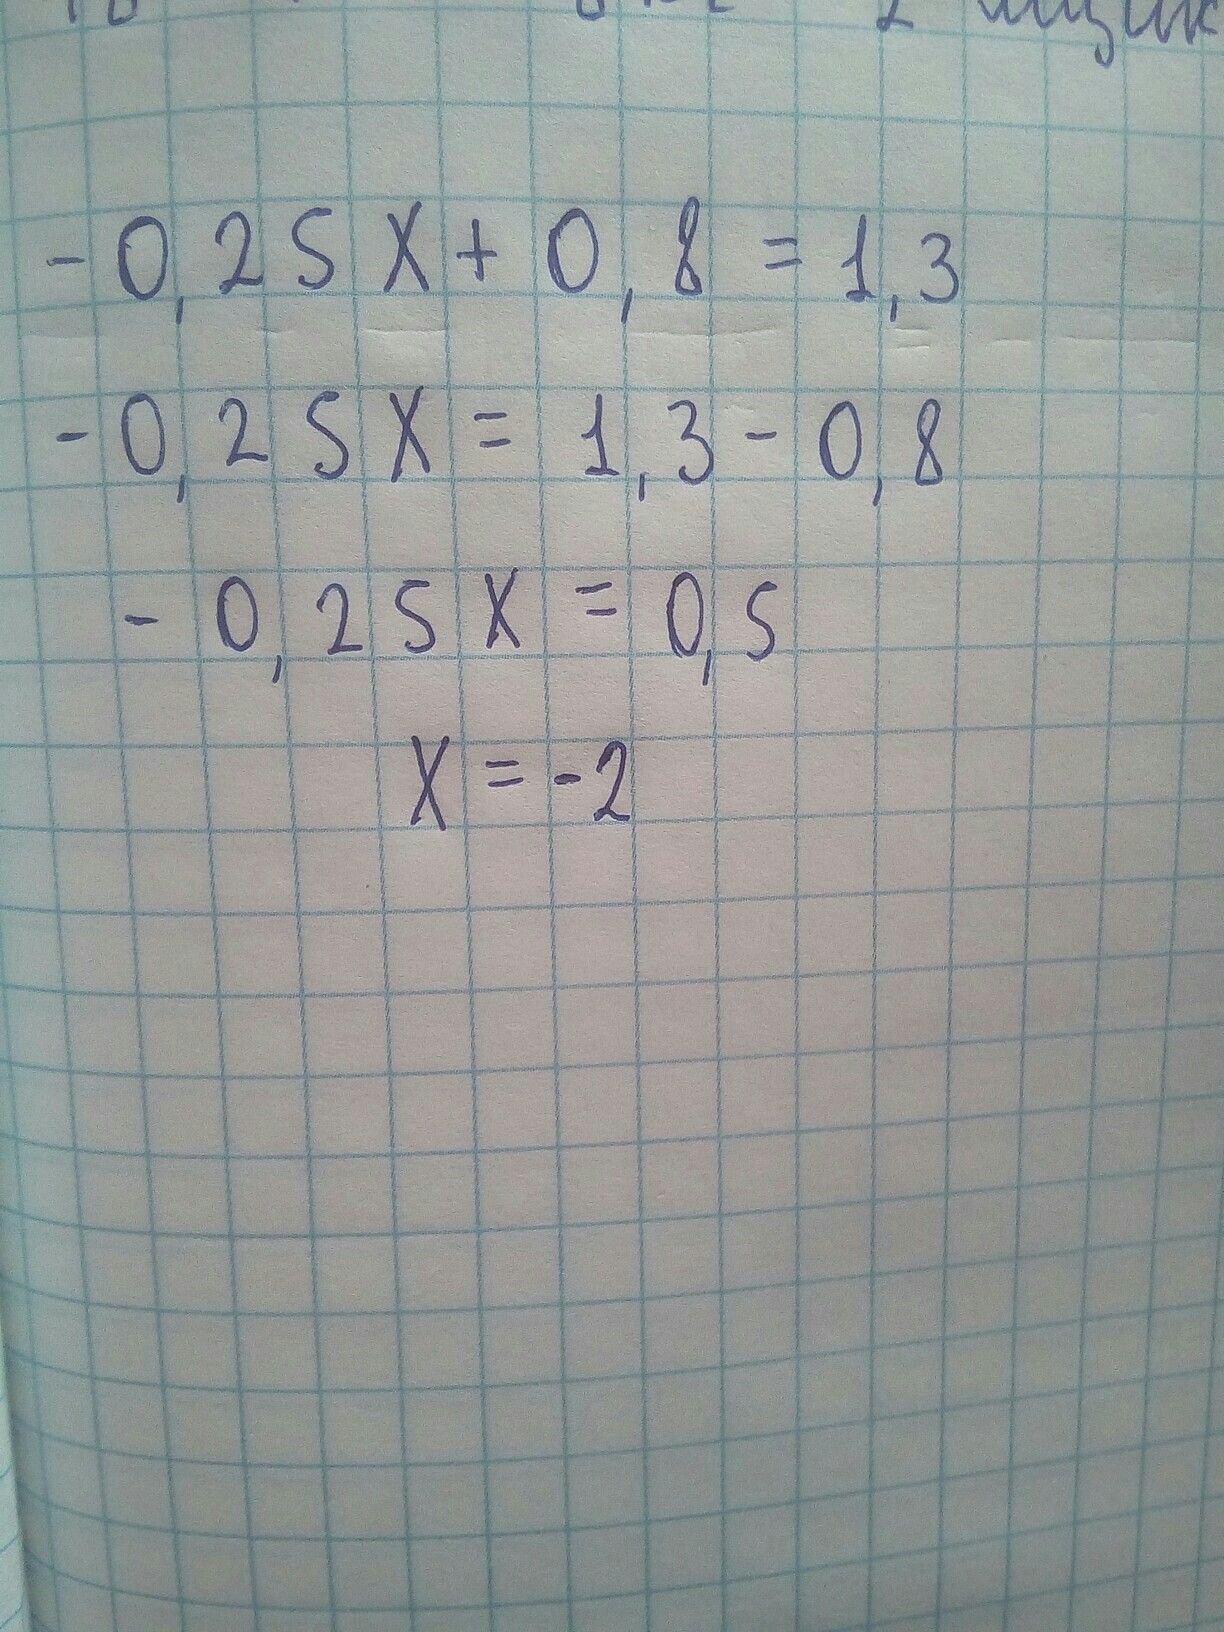 -0,25x+0,8=1,3
-0,25x=1,3-0,8
-0,25x=0,5
x=-2